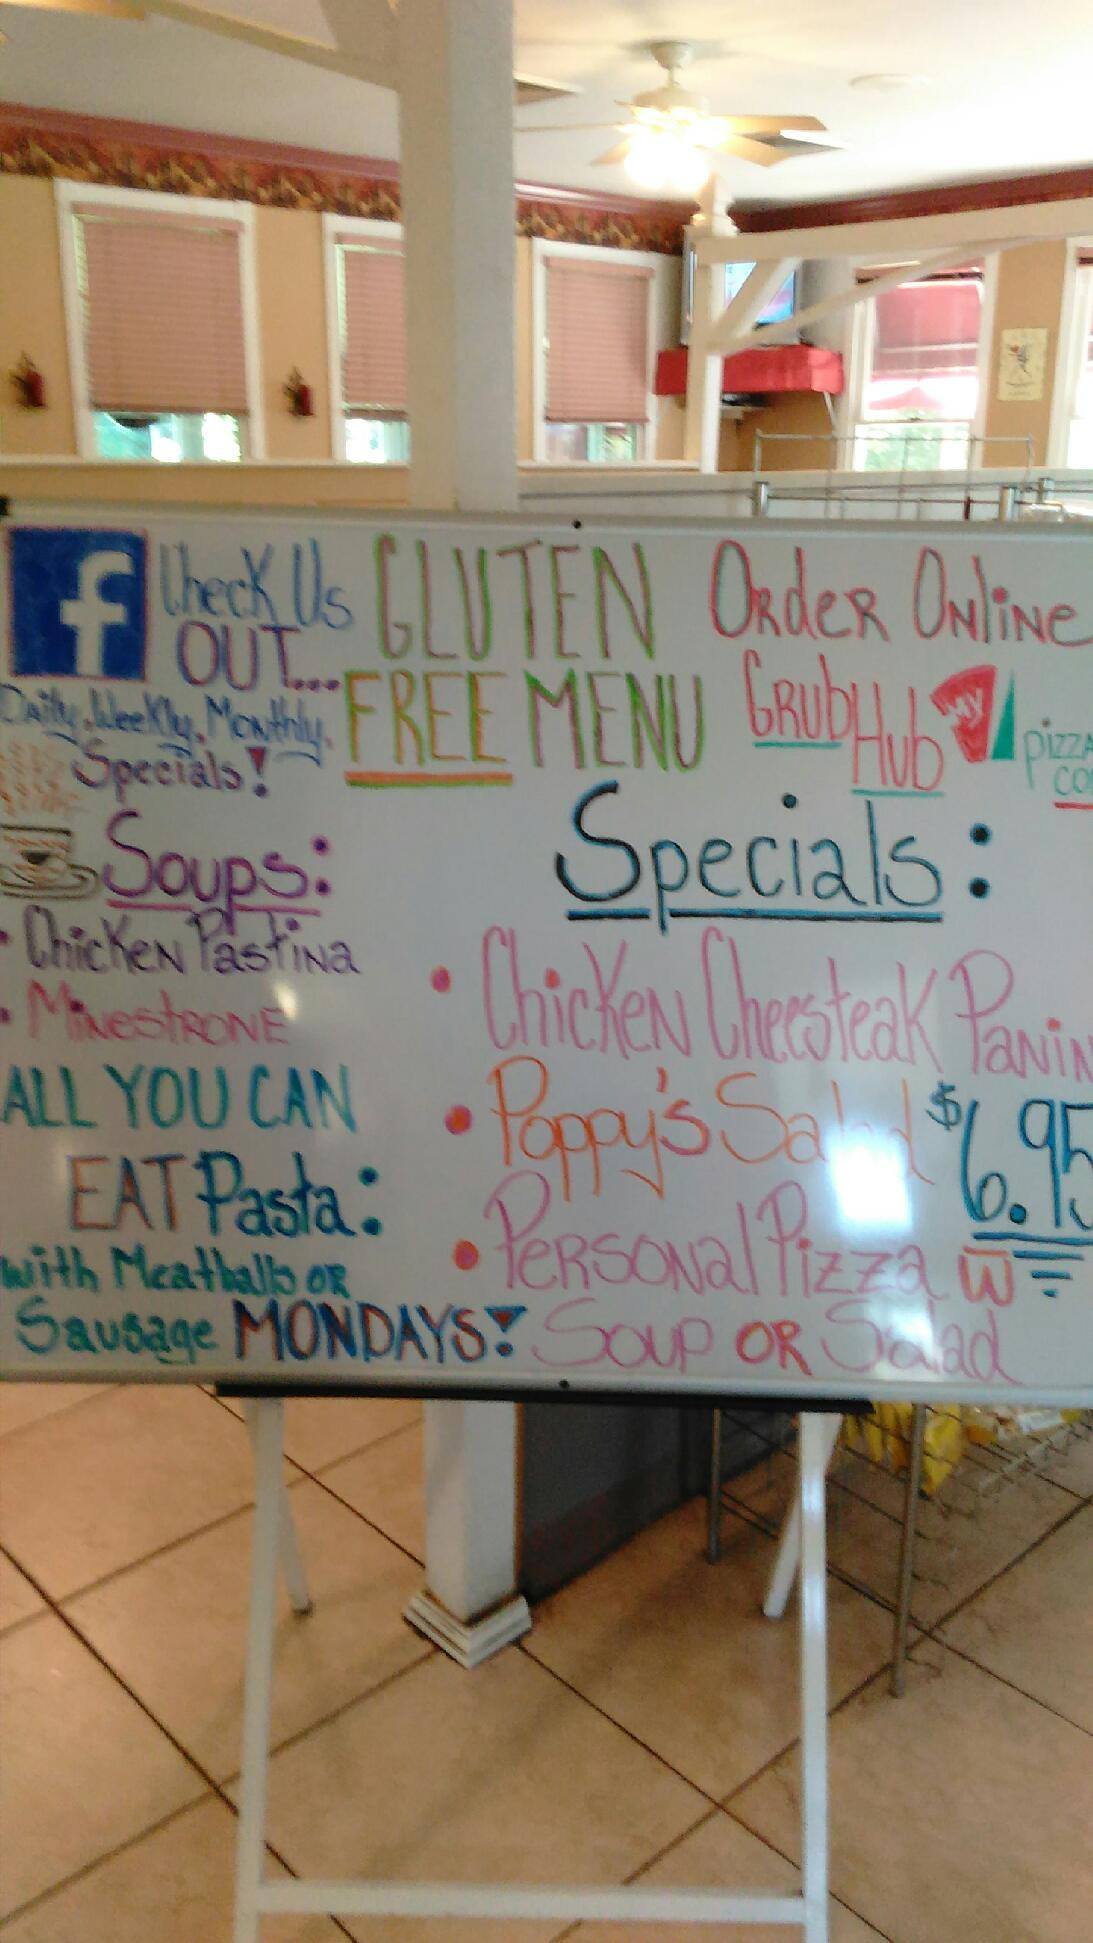 f Check Us
OUT...
Daily, Weekly, Monthly,
Specials!
GLUTEN
FREE MENU
Order Online
GrubHub
MY
pizza
co
Soups:
• Chicken Pastina
• Minestrone
ALL YOU CAN
EAT Pasta:
with Meatballs or
Sausage MONDAYS!
Specials:
• Chicken Cheesteak Panin
• Poppy's Salad $6.95
• Personal Pizza w
Soup or Salad